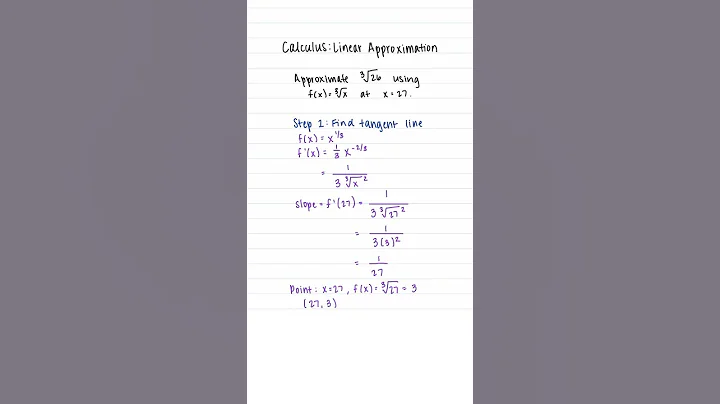 Calculus: Linear Approximation
Approximate ∛26 using
f(x) = ∛x at x = 27.
Step 1: Find tangent line
f(x) = x^1/3
f'(x) = 1/3 x^-2/3
= 1/(3 ∛x ²)
slope = f'(27) = 1/(3 ∛27 ²)
= 1/(3(3)²)
= 1/27
Point: x=27, f(x) = ∛27 = 3
(27, 3)